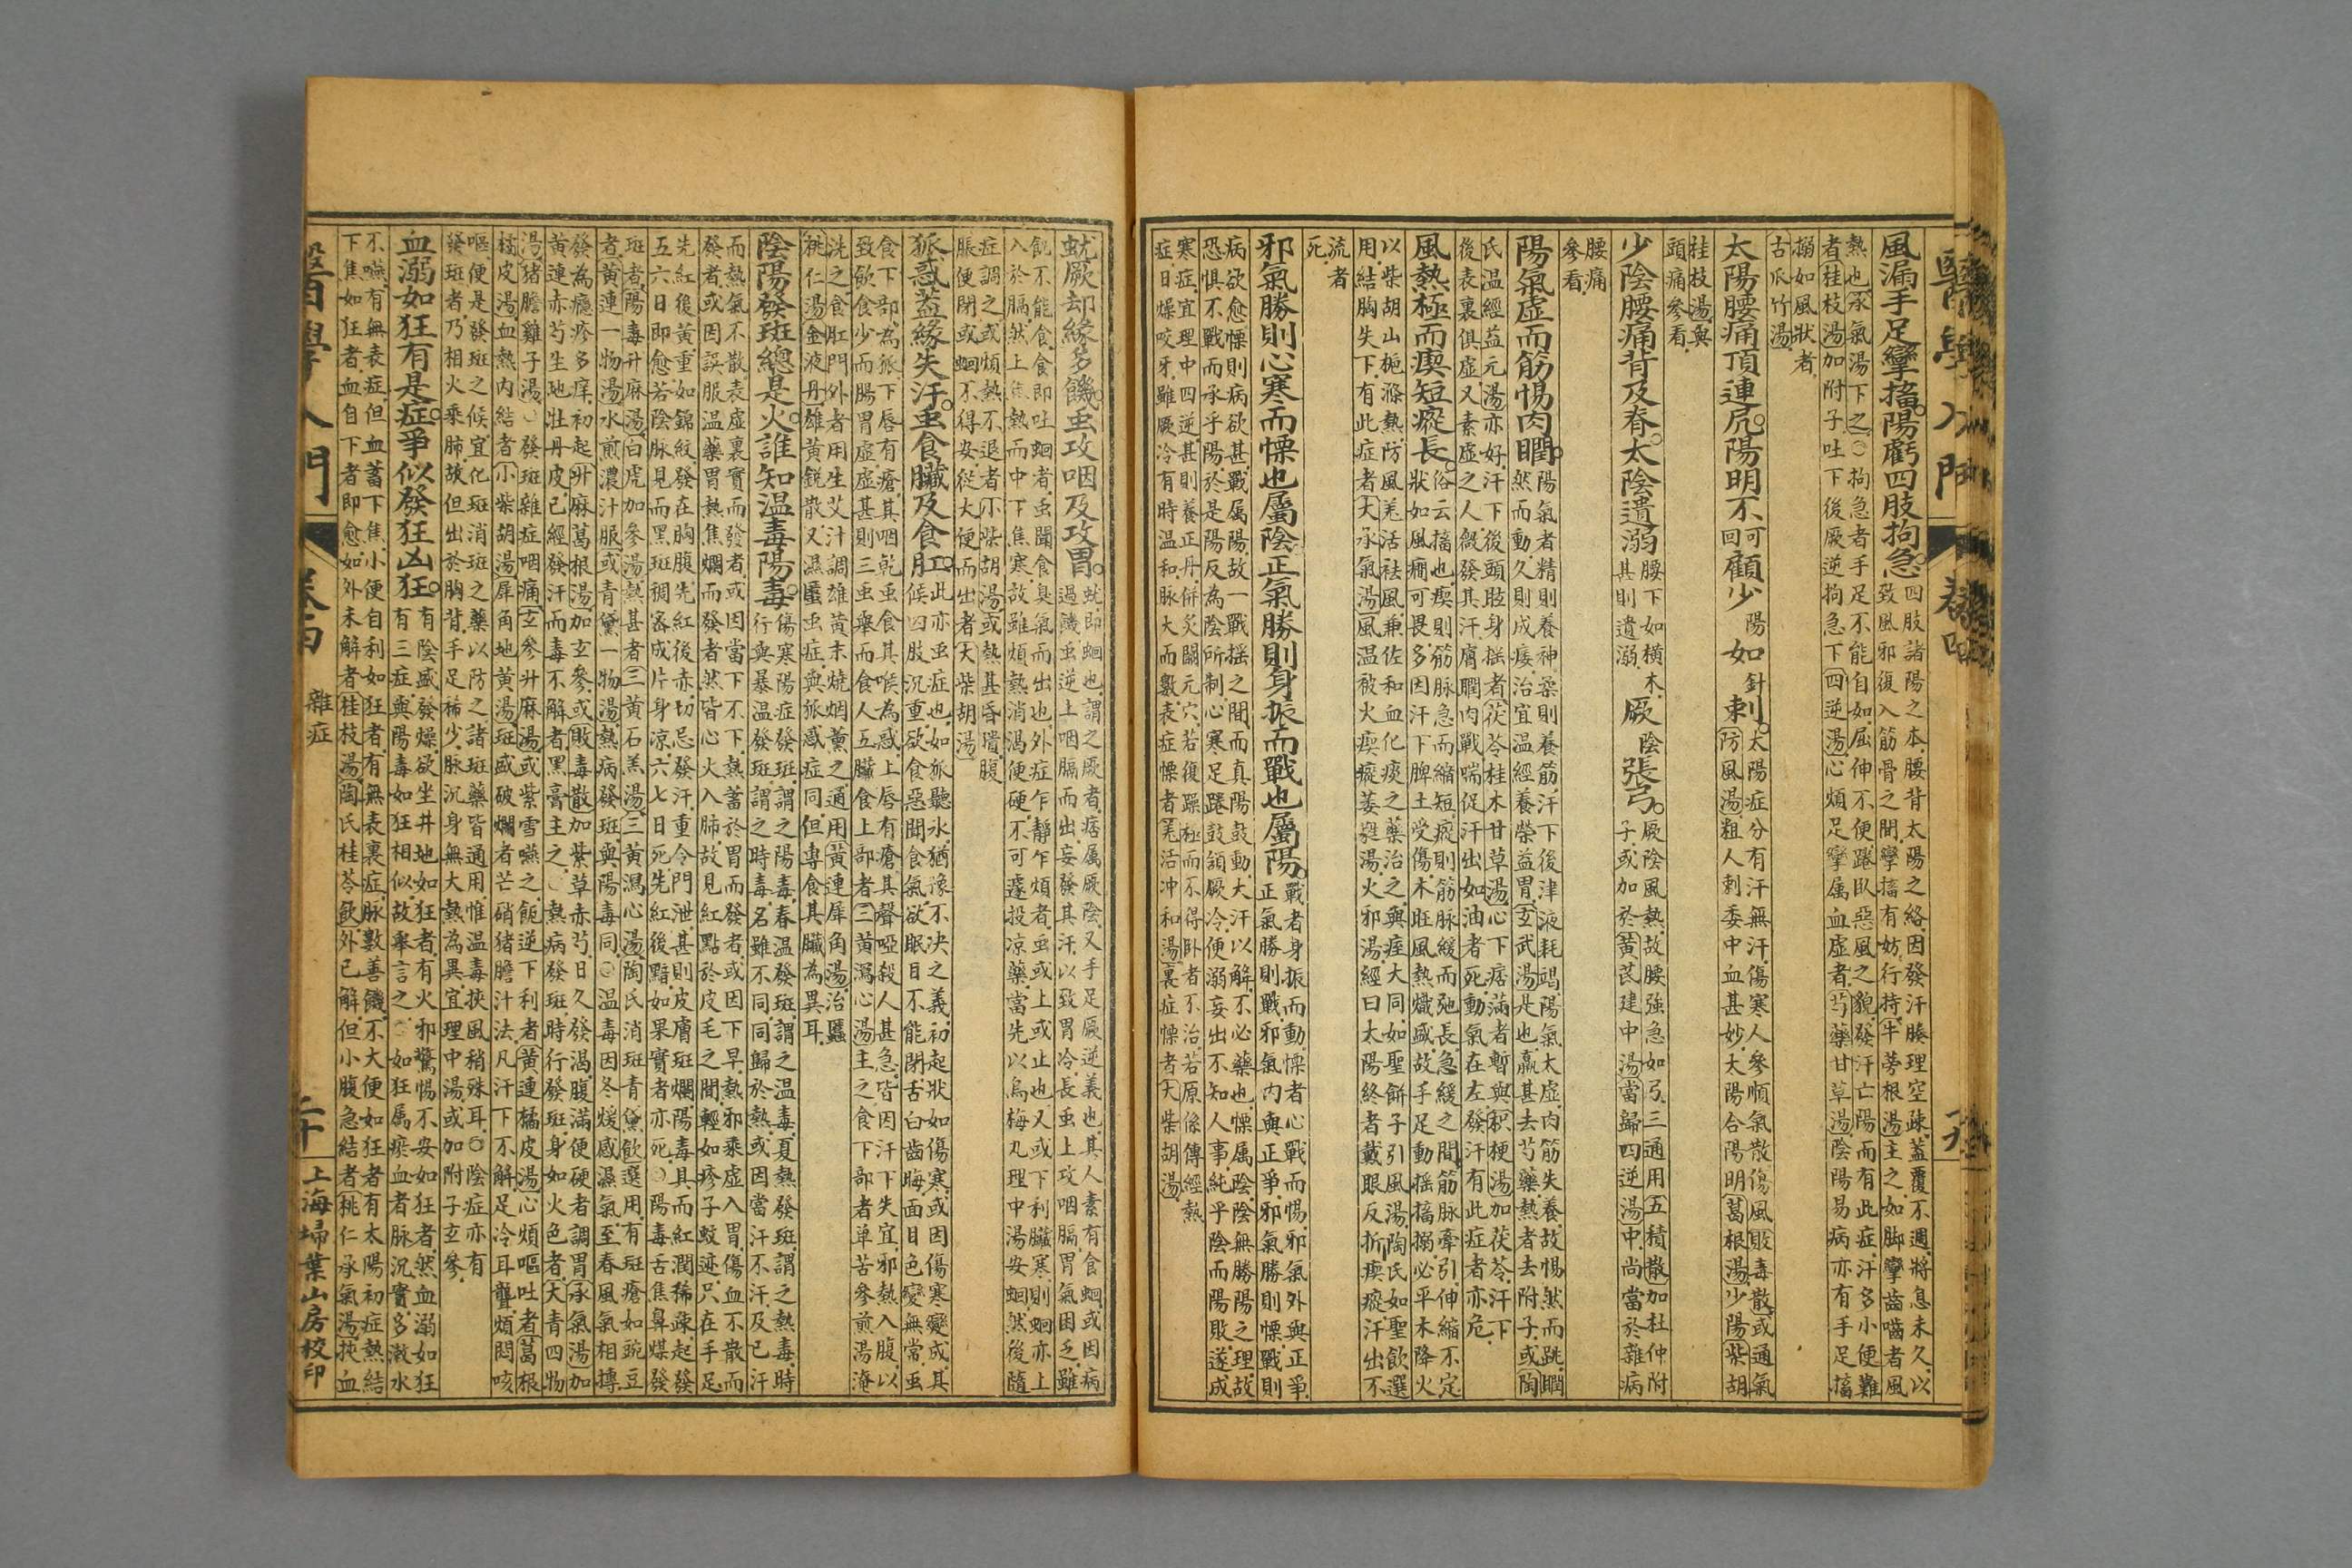 醫學入門 卷四
風漏手足攣搐。陽虧四肢拘急。四肢諸陽之本。腰背太陽之絡。因發汗腠理空疎。蓋覆不週。將息未久。以
致風邪復入筋骨之間。攣搐有妨行持。牛蒡根湯主之。如脚攣齒嚙者。風
熱也。承氣湯下之。○拘急者。手足不能自如。屈伸不便。踡臥惡風之貌。發汗亡陽而有此症。汗多小便難
者。桂枝湯加附子。吐下後厥逆拘急。下四逆湯。心煩足攣。属血虛者。芍藥甘草湯。陰陽易病。亦有手足搐
搦如風狀者。
古瓜竹湯。
太陽腰痛頂連尻。陽明不可回顧少陽如針刺。太陽症分有汗無汗。傷寒人參順氣散。傷風敗毒散。或通氣
防風湯。粗人刺委中血甚妙。太陽合陽明葛根湯。少陽柴胡
桂枝湯。與
頭痛參看。
少陰腰痛背及脊。太陰遺溺腰下如横木。甚則遺溺。厥陰張弓。厥陰風熱。故腰強急如弓。三通用五積散加杜仲附
子。或加於黃芪建中湯。當歸四逆湯中。尚當於雜病
腰痛
參看。
陽氣虛而筋惕肉瞤。陽氣者。精則養神。柔則養筋。汗下後津液耗竭。陽氣太虛。肉筋失養。故惕然而跳。瞤
然而動。久則成痿。治宜温經養榮益胃。玄武湯是也。羸甚去芍藥。熱者去附子。或陶
氏温經益元湯亦好。汗下後頭眩身摇者。茯苓桂木甘草湯。心下痞滿者。暫與枳梗湯加茯苓。汗下
後表裏俱虛。又素虛之人。微發其汗。膚瞤肉戰。喘促汗出如油者死。動氣在左發汗有此症者亦危。
風熱極而瘈短瘲長。俗云搐也。瘈則筋脉急而縮短。瘲則筋脉緩而弛長。急緩之間。筋脉牽引。伸縮不定
狀如風癇可畏。多因汗下脾土受傷。木旺風熱熾盛。故手足動摇搐搦。必平木降火
以柴胡山梔滌熱。防風羌活祛風。兼佐和血化痰之藥治之。與痓大同。如聖餅子。引風湯。陶氏如聖飲選
用。結胸失下有此症者。大承氣湯。風温被火瘈瘲。萎蕤湯。火邪湯。經曰。太陽終者。戴眼反折瘈瘲。汗出不
流者
死。
邪氣勝則心寒而慄也属陰。正氣勝則身振而戰也屬陽。戰者身振而動。慄者心戰而惕。邪氣外與正爭。
正氣勝則戰。邪氣内與正爭。邪氣勝則慄。戰則
病欲愈。慄則病欲甚。戰属陽。故一戰摇之間。而真陽鼓動。大汗以解。不必藥也。慄属陰。陰無勝陽之理。故
恐惧不戰而承乎陽。於是陽反為陰所制。心寒足踡。鼓頷厥冷。便溺妄出。不知人事。純乎陰而陽敗。遂成
寒症。宜理中四逆。甚則養正丹。併炙關元穴。若復躁極而不得卧者不治。若原係傳經熱
症。日燥咬牙。雖厥冷。有時温和。脉大而數。表症慄者。羌活冲和湯。裏症慄者。大柴胡湯。
蚘厥却緣多饑。虫攻咽及攻胃。蚘即蛔也。謂之厥者。痞属厥陰。又手足厥逆義也。其人素有食蛔。或因病
過饑。虫逆上咽膈而出。妄發其汗。以致胃冷。長虫上攻咽膈。胃氣困乏。雖
飢不能食。食即吐蛔者。虫聞食臭氣而出也。外症乍靜乍煩者。虫或上或止也。又或下利臟寒。則蛔亦上
入於膈。然上焦熱而中下焦寒。故雖煩熱消渴便硬。不可遽投凉藥。當先以烏梅丸理中湯安蛔。然後隨
症調之。或煩熱不退者。小柴胡湯。或熱甚昏瞶。腹
脹便閉。或蛔不得安。從大便而出者。大柴胡湯。
狐惑蓋緣失汗。虫食臟及食肛。此亦虫症也。如狐聽氷。猶豫不决之義。初起狀如傷寒。或因傷寒變成。其
候四肢沉重。欲食食惡聞食氣。欲眠目不能閉。舌白齒晦。面目色變無常。虫
食下部為狐。下唇有瘡。其咽乾。虫食其喉為惑。上唇有瘡。其聲啞。殺人甚急。皆因汗下失宜。邪熱入腹。以
致飲食少而腸胃虛。虛甚則三虫舉而食人五臟。食上部者。三黄瀉心湯主之。食下部者。单苦參煎湯淹
洗之。食肛門外者。用生艾汁調雄黄末燒烟薰之。通用黄連犀角湯。治䘌
桃仁湯。金液丹。雄黄鋭散。又濕䘌虫症。與狐惑症同。但專食其臟為異耳。
陰陽發斑總是火。誰知温毒陽毒。傷寒陽症發斑。謂之陽毒。春温發斑。謂之温毒。夏熱發斑。謂之熱毒。時
行與暴温發斑。謂之時毒。名雖不同。同歸於熱。或因當汗不汗。及已汗
而熱氣不散。表虛裏實而發者。或因當下不下。熱蓄於胃而發者。或因下早。熱邪乘虛入胃。傷血不散而
發者。或因誤服温藥。胃熱焦爛而發者。然皆心火入肺。故見紅點於皮毛之間。輕如疹子蚊迹。只在手足
先紅後黄。重如錦紋。發在胸腹。先紅後赤。切忌發汗。重令門泄。甚則皮膚斑爛。陽毒具而紅潤稀疎。起發
五六日即愈。若陰脉見而黑斑稠密成片。身凉六七日死。先紅後黯如果實者亦死。○陽毒舌焦鼻煤。發
斑者。陽毒升麻湯。白虎加參湯。熱甚者。三黄石羔湯。三黄瀉心湯。陶氏消斑青黛飲選用。有斑瘡如豌豆
者。黄連一物湯。水煎濃汁服。或青黛一物湯。熱病發斑。與陽毒同。○温毒因冬煖感濕氣。至春風氣相搏
發為癮疹多痒。初起升麻葛根湯加玄參。或敗毒散加紫草赤芍。日久發渴。腹滿便硬者。調胃承氣湯加
黄連赤芍生地牡丹皮。已經發汗而毒不解者。黑膏主之。○熱病發斑。時行發斑。身如火色者。大青四物
湯。猪膽雞子湯。○發斑雜症。咽痛。玄參升麻湯。或紫雪嚥之。飽逆下利者。黄連橘皮湯。心煩嘔吐者。葛根
橘皮湯。血熱内結者。小柴胡湯。犀角地黄湯。斑盛破爛者。芒硝猪膽汁法。凡汗下不解。足冷耳聾。煩悶咳
嘔。便是發斑之候。宜化斑消斑之藥以防之。諸斑藥皆通用。惟温毒挾風稍殊耳。○陰症亦有
發斑者。乃相火乘肺。故但出於胸背手足稀少。脉沉身無大熱為異。宜理中湯。或加附子玄參。
血溺如狂有是症。爭似發狂凶狂。有陰盛發燥。欲坐井地如狂者。有火邪驚惕不安如狂者。然血溺如狂
有三症。與陽毒如狂相似。故舉言之。○如狂属瘀血者。脉沉實。多漱水
不嚥。有無表症。但血蓄下焦。小便自利如狂者。有無表裏症。脉數善饑。不大便如狂者。有太陽初症。熱結
下焦如狂者。血自下者即愈。如外未解者。桂枝湯。陶氏桂苓飲。外已解。但小腹急結者。桃仁承氣湯。挾血
醫學入門 卷四 雜症 二十 上海埽葉山房校印